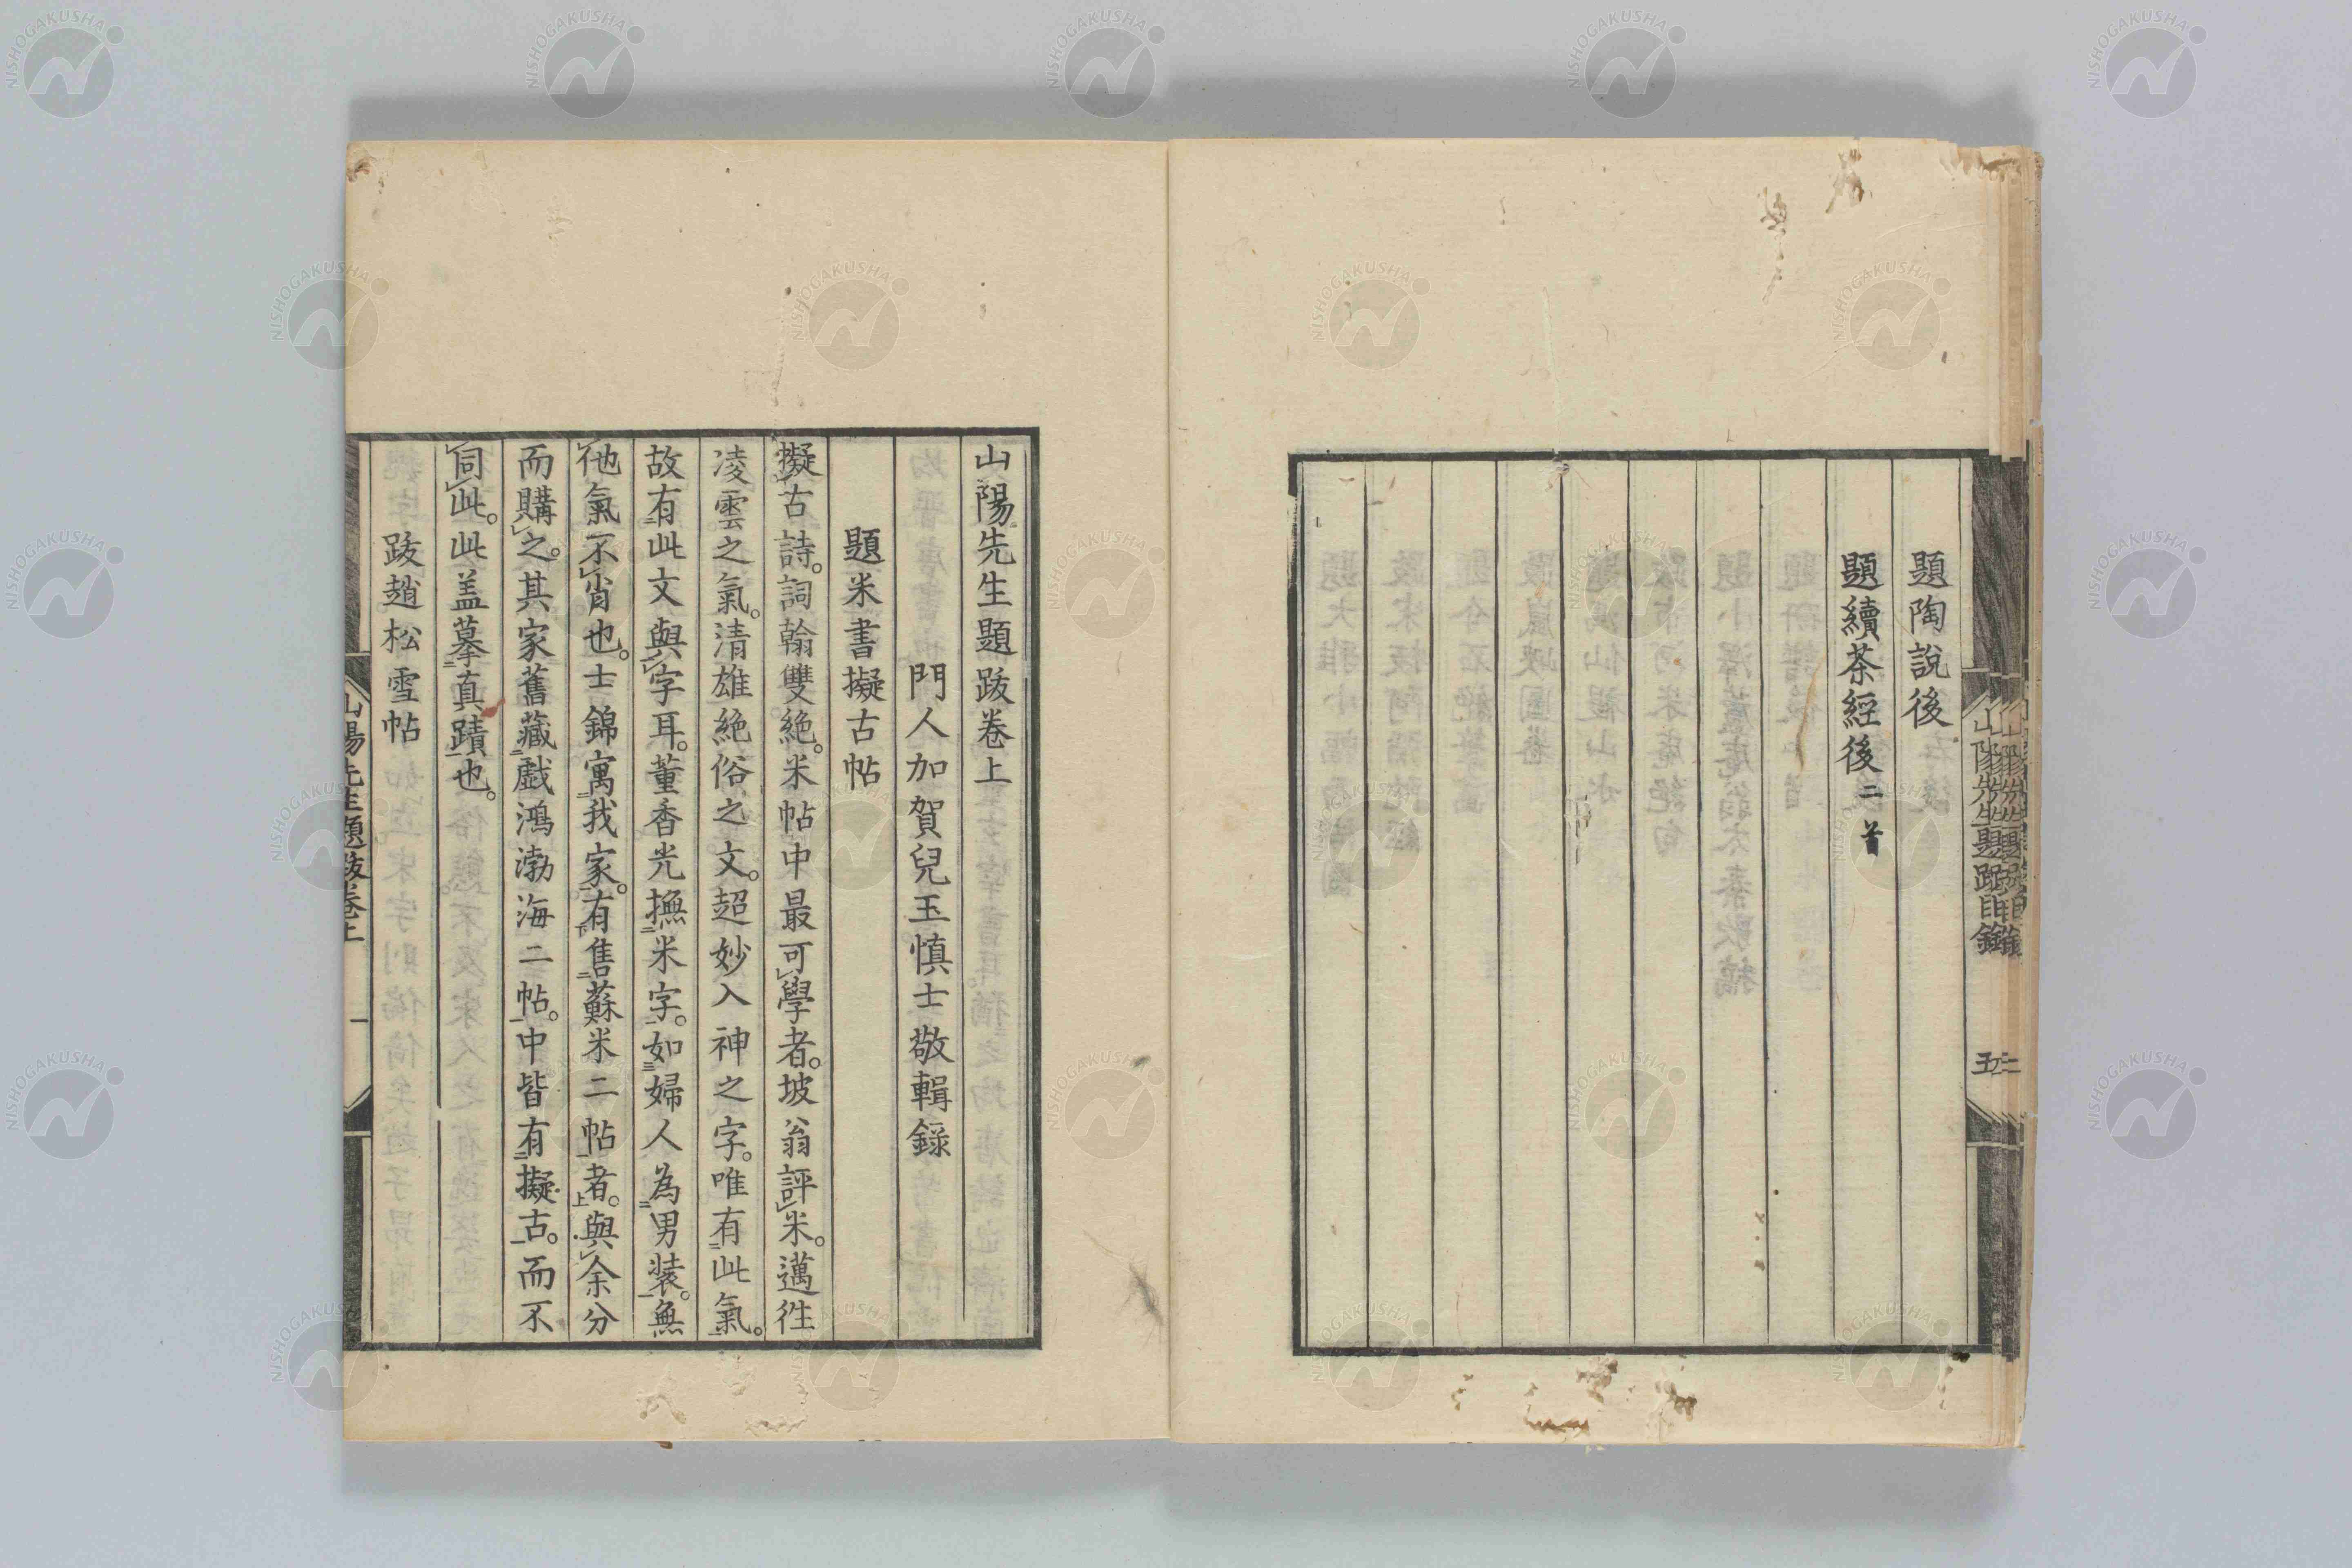 題陶說後
題續茶經後二首
山陽先生題跋卷上
門人加賀兒玉慎士敬輯録
題米書擬古帖
擬古詩。詞翰雙絶。米帖中最可學者。坡翁評米。邁徃
凌雲之氣。清雄絶俗之文。超妙入神之字。唯有此氣。
故有此文與字耳。董香光撫米字。如婦人為男装。無
他氣不肖也。士錦寓我家。有售蘇米二帖者。與余分
而購之。其家舊藏戲鴻渤海二帖。中皆有擬古。而不
同此。此盖摹真蹟也。
跋趙松雪帖
山陽先生題跋卷上 一
NISHOGAKUSHA